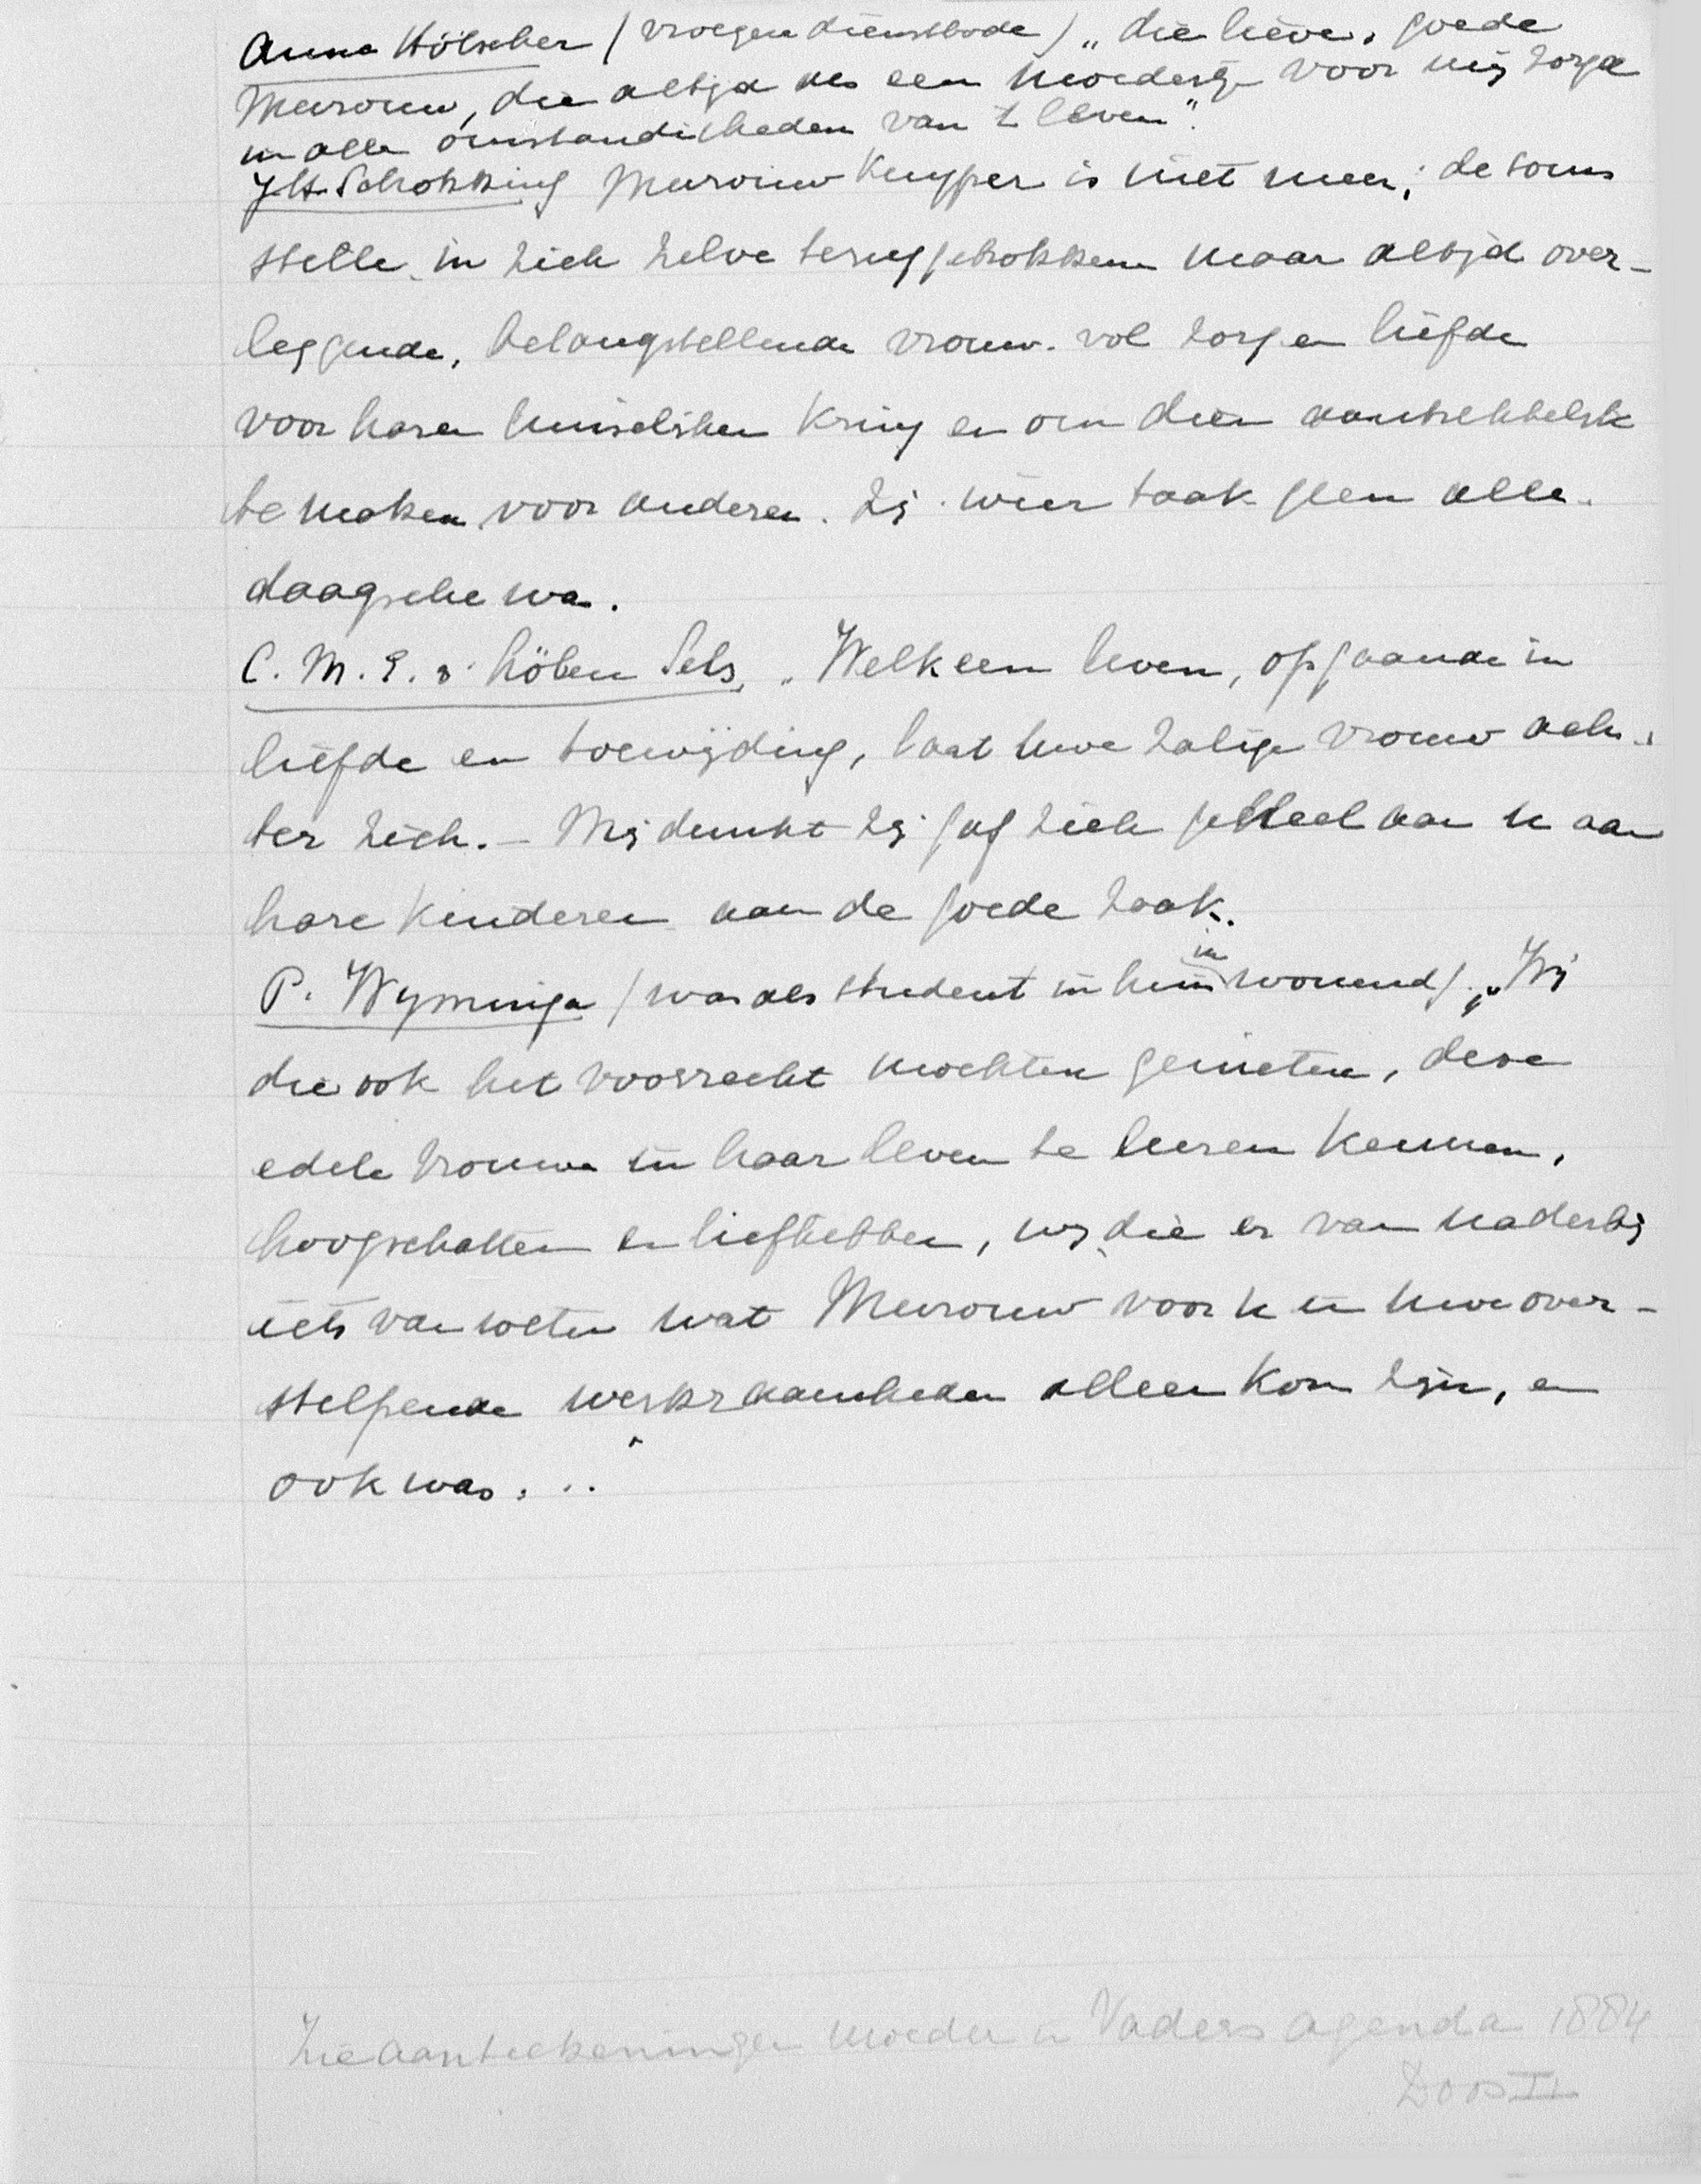 Anna Hölscher (vroegere dienstbode) „die lieve, goede
Mevrouw, die altijd als een moedertje voor mij zorgde
in alle omstandigheden van 't leven".
J.H. Schokking Mevrouw Kuyper is niet meer; de soms
stille, in zich zelve teruggetrokken maar altijd over-
leggende, belangstellende vrouw. vol zorg en liefde
voor haren huiselijken kring en om dien aantrekkelijk
te maken voor anderen. Zij wier taak geen alle-
daagsche was.
C. M. E. v. Löben Sels, „Welk een leven, opgaande in
liefde en toewijding, laat uwe zalige vrouw ach-
ter zich. – Mij dunkt zij gaf zich geheel aan u aan
hare kinderen aan de goede zaak.
P. Wyminga (was als student in huis inwonend) „Wij
die ook het voorrecht mochten genieten, deze
edele vrouwe in haar leven te leeren kennen,
hoogschatten en liefhebben, wij die er van naderbij
iets van weten wat Mevrouw voor u in uwe over-
stelpende werkzaamheden alleen kon zijn, en
ook was...
Zie aanteekeningen moeder in Vaders agenda 1884
Doos II